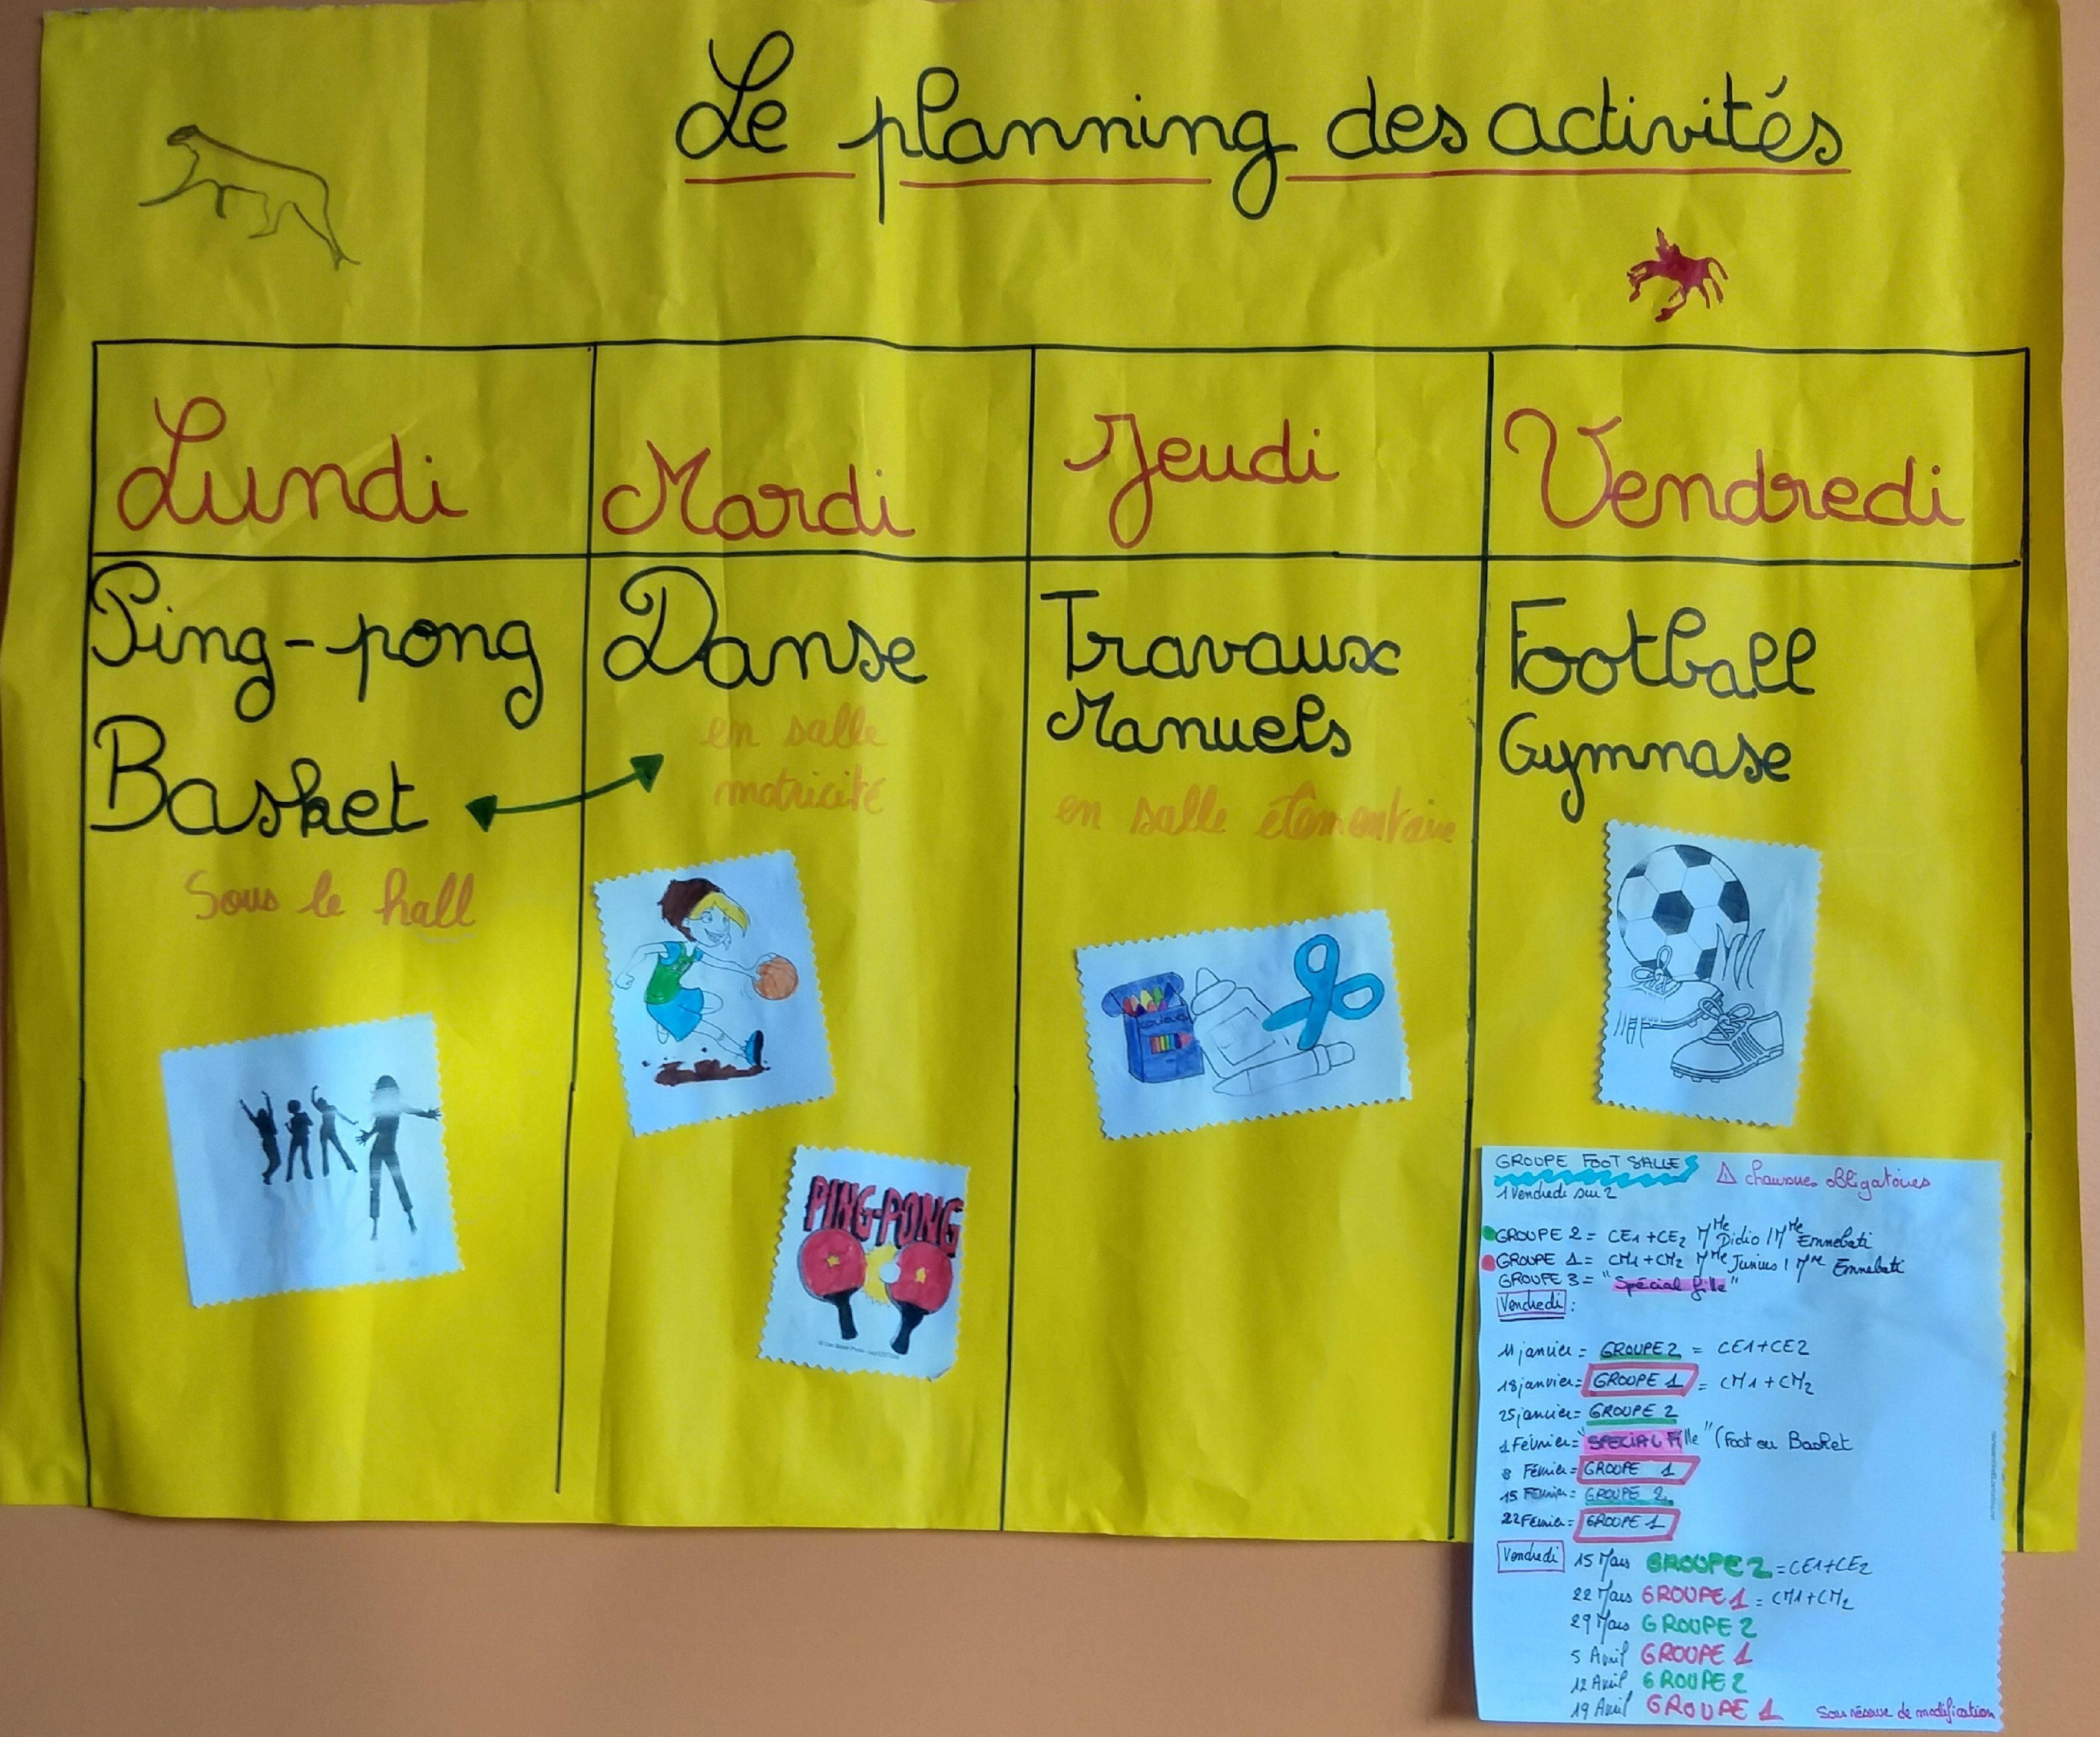 Le planning des activités
Lundi
Mardi
Jeudi
Vendredi
Ping-pong
Basket
Sous le hall
Danse
en salle
motricité
Travaux
Manuels
en salle élémentaire
Football
Gymnase
PING-PONG
GROUPE FOOT SALLE
⚠ chaussures obligatoires
1 Vendredi sur 2
GROUPE 2 = CE1 + CE2 Mme Didio / Mme Emnebati
GROUPE 1 = CM1 + CM2 Mme Junius / Mme Emnebati
GROUPE 3 = "Spécial fille"
Vendredi :
11 janvier = GROUPE 2 = CE1+CE2
18 janvier = GROUPE 1 = CM1 + CM2
25 janvier = GROUPE 2
1 Février = "SPECIAL Fille" (Foot ou Basket
8 Février = GROUPE 1
15 Février = GROUPE 2
22 Février = GROUPE 1
Vendredi 15 Mars GROUPE 2 = CE1+CE2
22 Mars GROUPE 1 = CM1+CM2
29 Mars GROUPE 2
5 Avril GROUPE 1
12 Avril GROUPE 2
19 Avril GROUPE 1
Sous réserve de modification